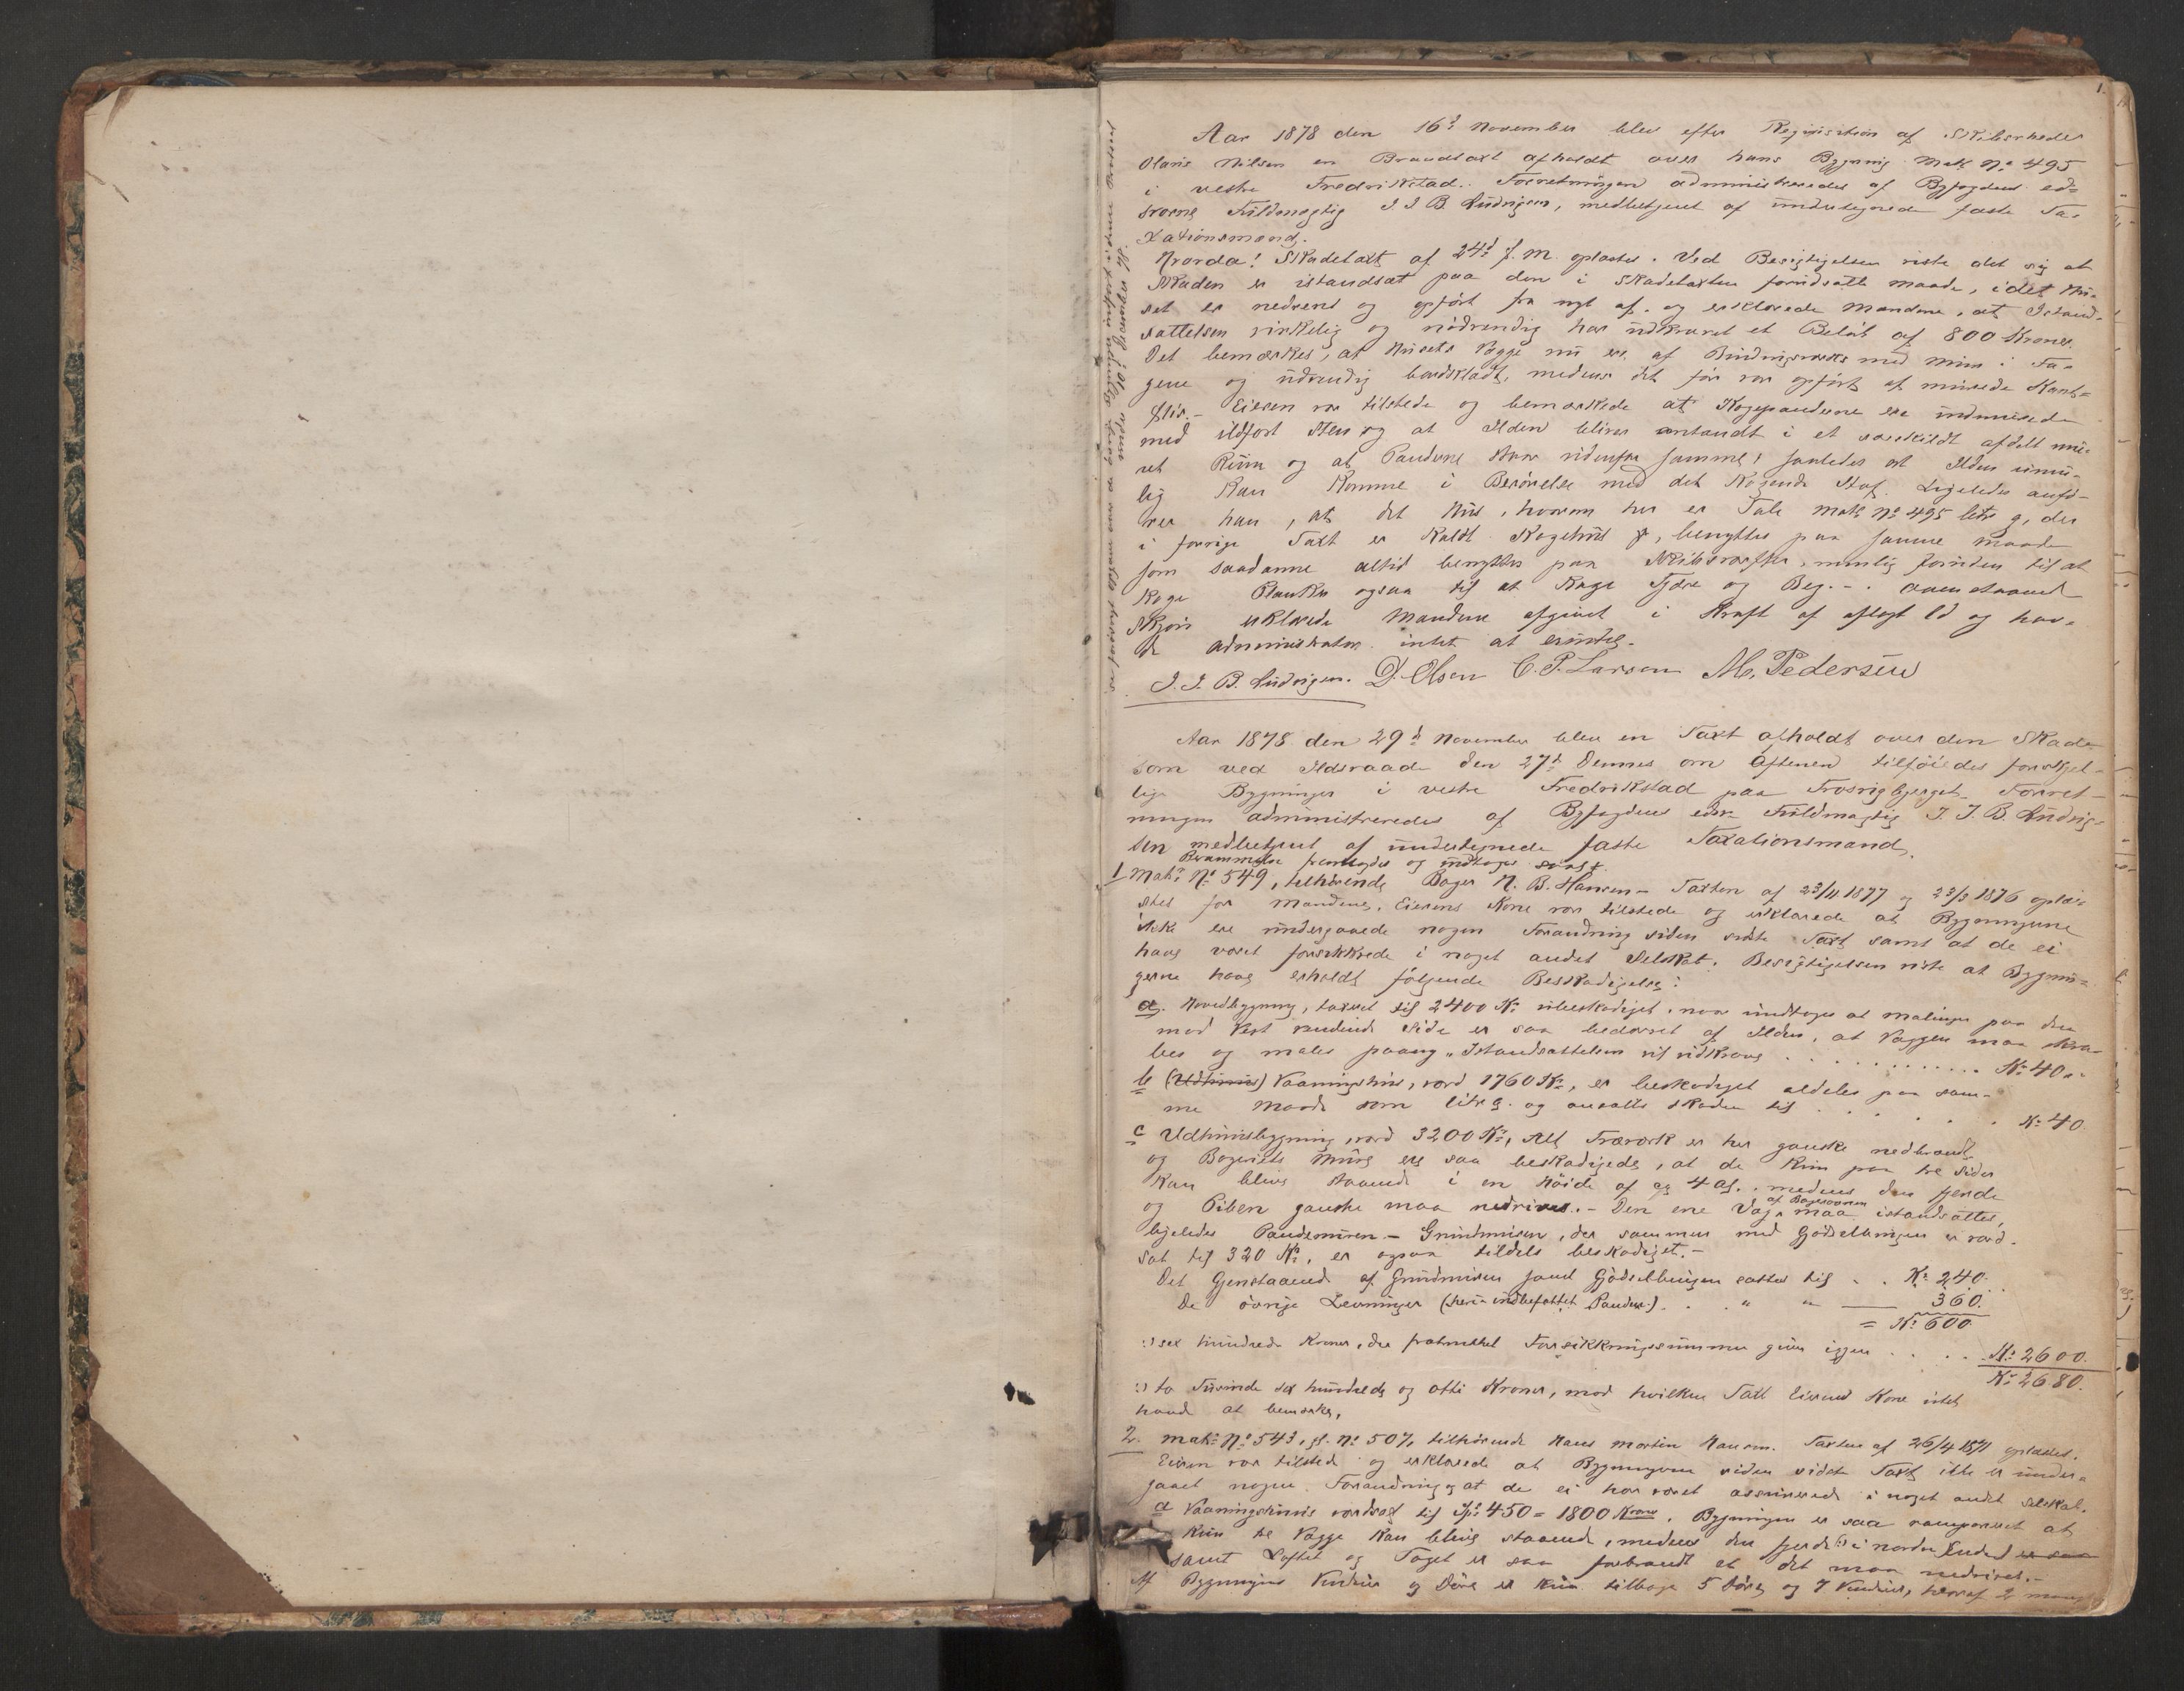 1.
Aar 1878 den 16d November blev efter Reqvisition af Skibsrheder
Olaus Nilsen en Brandtaxt afholdt over hans Bygning Matr. No 495
i vestre Fredrikstad. Forretningen administreredes af Byfogdens ed-
svorne Fuldmægtig J. J. B. Ludvigsen, medbetjent af undertegnede faste Ta-
xationsmænd.
Hvorda! Skadetaxt af 24d f. M. oplæstes. Ved Besigtigelsen viste det sig at
Skaden er istandsat paa den i Skadetaxten forudsatte Maade, idet Hu-
set er nedrevet og opført fra nyt af, og erklærede Mændene, at Istand-
sættelsen virkelig og nødvendig har udkrævet et Beløb af 800 Kroner.
Det bemærkes, at Husets Vægge nu er af Bindingsværk med Mur i Fa-
gene og udvendig bordklædt, medens det før var opført af murede Kant-
flis. - Eieren var tilstede og bemærkede at Kogepanderne ere indmurede
med ildfast Sten og at Ilden bliver antændt i et særskildt afdelt mu-
ret Rum og at Panderne staar udenfor samme, saaledes at Ilden umu-
lig kan komme i Berørelse med det kogende Stof. Ligeledes anfø-
rer han, at det Hus, hvorom her er Tale Matr. No 495 litr g, der
i forrige Taxt er kaldt Kogehus, benyttes paa samme Maade
som saadanne altid benyttes paa Skibsværfter, nemlig foruden til at
koge Planker ogsaa til at koge Tjære og Beg. - Ovenstaaende
Skjøn erklærede Mændene afgivet i Kraft af aflagt Ed og hav-
de Administrator intet at erindre.
J. J. B. Ludvigsen. D. Olsen C. P. Larsen M. Pedersen
Aar 1878 den 29d November blev en Taxt afholdt over den Skade
som ved Ildsvaade den 27d Dennes om Aftenen tilføiedes forskjel-
lige Bygninger i vestre Fredrikstad paa Trosvigbjerget. Forret-
ningen administreredes af Byfogdens edsv. Fuldmægtig J. J. B. Ludvig-
sen medbetjent af undertegnede faste Taxationsmænd.
fremlagdes og
1 Matr. No 549, tilhørende Bager N. B. Hansen - Taxten af 23/11 1877 og 23/3 1876 oplæ-
stes for Mændene. Eierens Kone var tilstede og erklærede at Bygningerne
ikke ere undergaaede nogen Forandring siden sidste Taxt samt at de ei
have været forsikkrede i noget andet Selskab. Besigtigelsen viste at Bygnin-
gerne have erholdt følgende Beskadigelse:
a. Hovedbygning, taxeret til 2400 Kr. ubeskadiget, naar undtages at Malingen paa den
mod Vest vendende Side er saa bedærvet af Ilden, at Væggen maa skra-
bes og males paany. Istandsættelsen vil udkræve . . . . . . . . . . . Kr. 40.
b (Udhuus) Vaaningshus, værd 1760 Kr., er beskadiget aldeles paa sam-
me Maade som litr a. og ansattes Skaden til . . . . . . Kr. 40.
c Udhuusbygning, værd 3200 Kr., Alt Træværk er her ganske nedbrændt
og Bageriets Mure ere saa beskadigede, at de kun paa tre Sider
kan blive staaende i en Høide af ca 4 Al. medens den fjerde
og Piben ganske maa nedrives. - Den ene Væg maa istandsættes,
ligeledes Pandemuren. - Grundmuren, der sammen med Gjødselbingen er værd-
sat til 320 Kr., er ogsaa tildels beskadiget. -
Det Gjenstaaende af Grundmuren samt Gjødselbingen sættes til . . Kr. 240.
De øvrige Levninger (heri indbefattet Panden) . . . " " — 360.
= Kr. 600
:/: sex hundrede Kroner, der fratrukket Forsikkringssummen giver igjen . . . . Kr. 2600.
Kr. 2680.
:/: to Tusinde sex hundrede og otti Kroner, mod hvilken Taxt Eierens Kone intet
havde at bemærke.
2. Matr. No 543, gl. No 507, tilhørende Hans Morten Hansen. Taxten af 26/4 1871 oplæstes.
Eieren var tilstede og erklærede at Bygningerne siden sidste Taxt ikke er under-
gaaet nogen Forandring og at de ei har været assurerede i noget andet Selskab.
a Vaaningshuus værdsat til Spd 450 = 1800 Kroner. Bygningen er saa ramponeret at
kun tre Vægge kan blive staaende, medens den fjerde (i nordre Ende) er saa
samt Loftet og Taget er saa forbrændt at det maa nedrives. -
Af Bygningens Vinduer og Døre er kun tilbage 5 Døre og 7 Vinduer, heraf 2